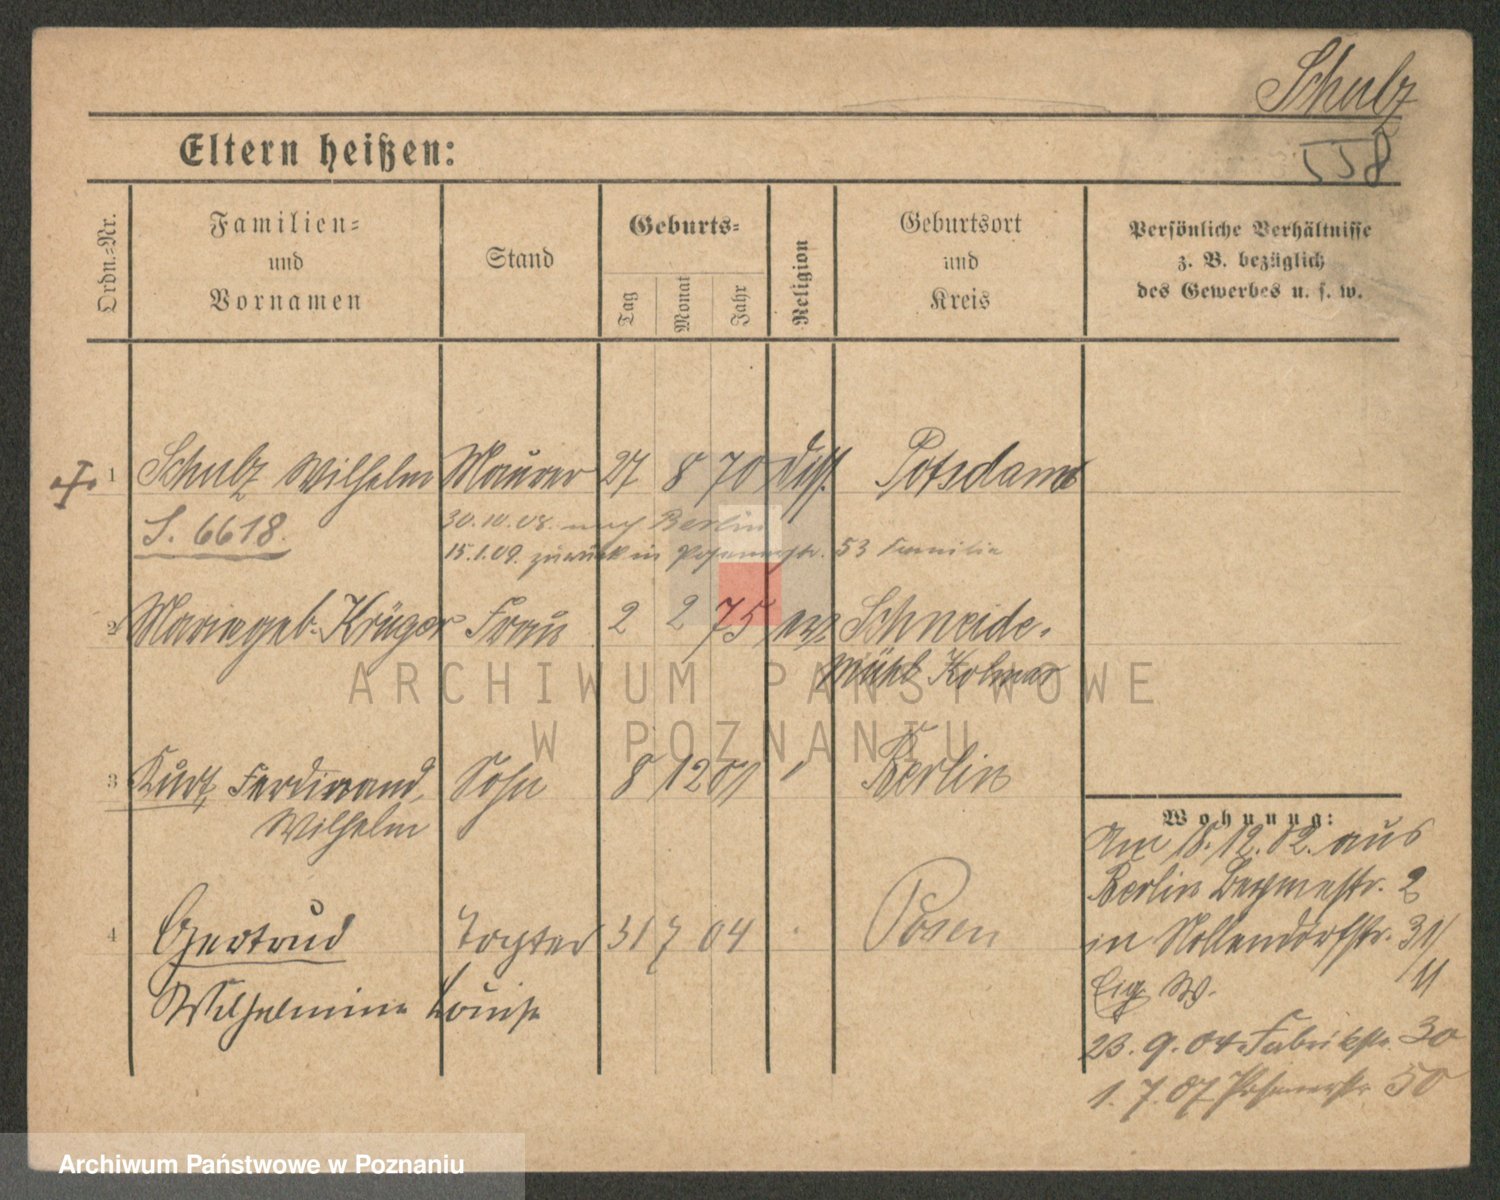 Schulz
558
Eltern heißen:
Ordn.=Nr.
Familien=
und
Vornamen
Stand
Geburts=
Tag
Monat
Jahr
Religion
Geburtsort
und
Kreis
Persönliche Verhältnisse
z. B. bezüglich
des Gewerbes u. s. w.
1 Schulz Wilhelm Maurer 27 8 70 Diss. Potsdam
S. 6618.
30.10.08. nach Berlin
15.1.09. zurück in Posenerstr. 53 Familie
2 Marie geb. Krüger Frau 2 2 75 Schneide-
mühl Kolmar
3 Kurt Ferdinand Sohn 8 12 01 Berlin
Wilhelm
4 Gertrud Tochter 31 7 04 Posen
Wilhelmine Louise
Wohnung:
Am 18.12.02. aus
Berlin 2
in Nollendorfstr. 31/
11
Eig. W.
23.9.04 Fabrikstr. 30
1.7.07 Posenerstr. 50
ARCHIWUM PAŃSTWOWE
W POZNANIU
Archiwum Państwowe w Poznaniu